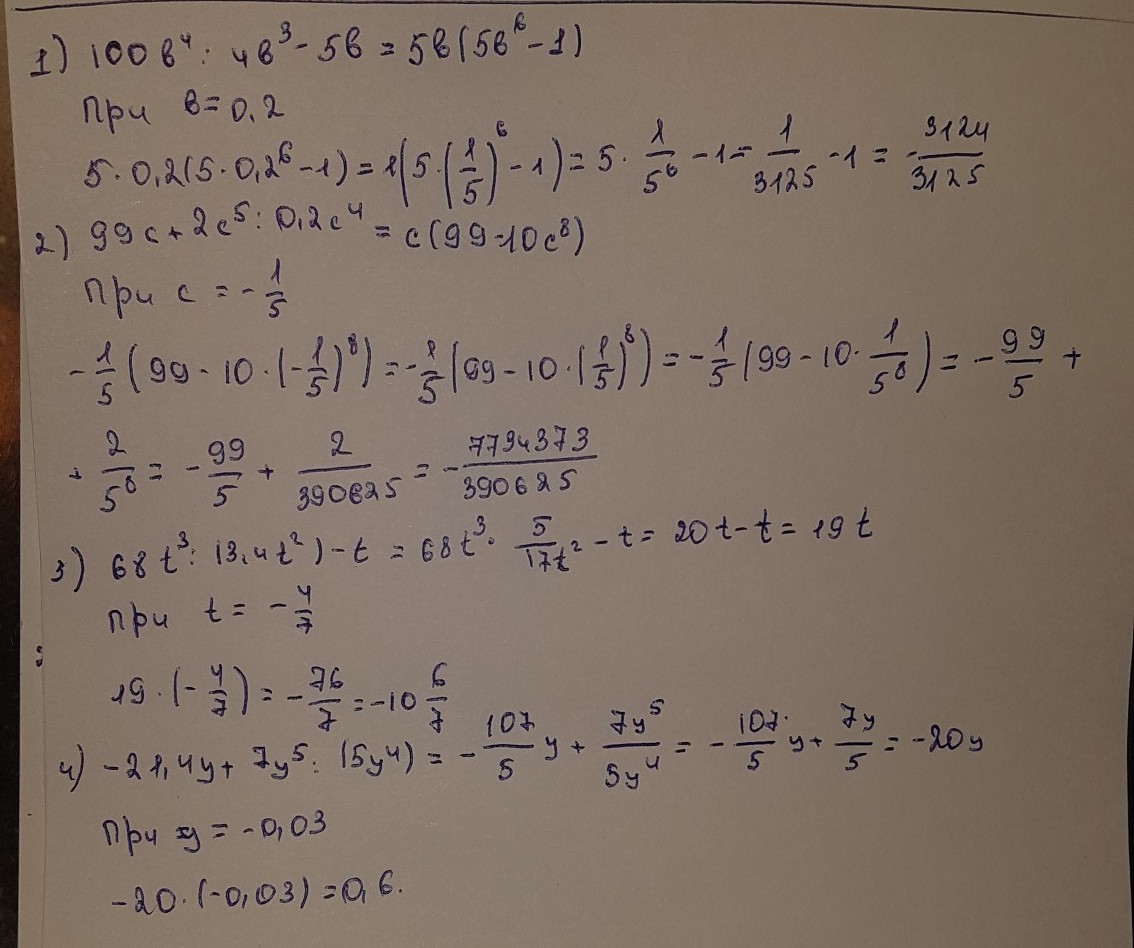 1) 100в⁴ : 4в³ - 5в = 5в(5в⁶ - 1)
При в = 0,2
5·0,2(5·0,2⁶ - 1) = 1(5·(1/5)⁶ - 1) = 5·1/5⁶ - 1 = 1/3125 - 1 = -3124/3125
2) 99с + 2с⁵ : 0,2с⁴ = с(99-10с⁸)
При с = -1/5
-1/5(99 - 10·(-1/5)⁸) = -1/5(99 - 10·(1/5)⁸) = -1/5(99 - 10·1/5⁸) = -99/5 +
+ 2/5⁸ = -99/5 + 2/390625 = -7734373/390625
3) 68t³ : (3,4t²) - t = 68t³·5/17t² - t = 20t - t = 19t
При t = -4/7
19·(-4/7) = -76/7 = -10 6/7
4) -21,4y + 7y⁵ : (5y⁴) = -107/5 y + 7y⁵/5y⁴ = -107/5 y + 7y/5 = -20y
При y = -0,03
-20·(-0,03) = 0,6.